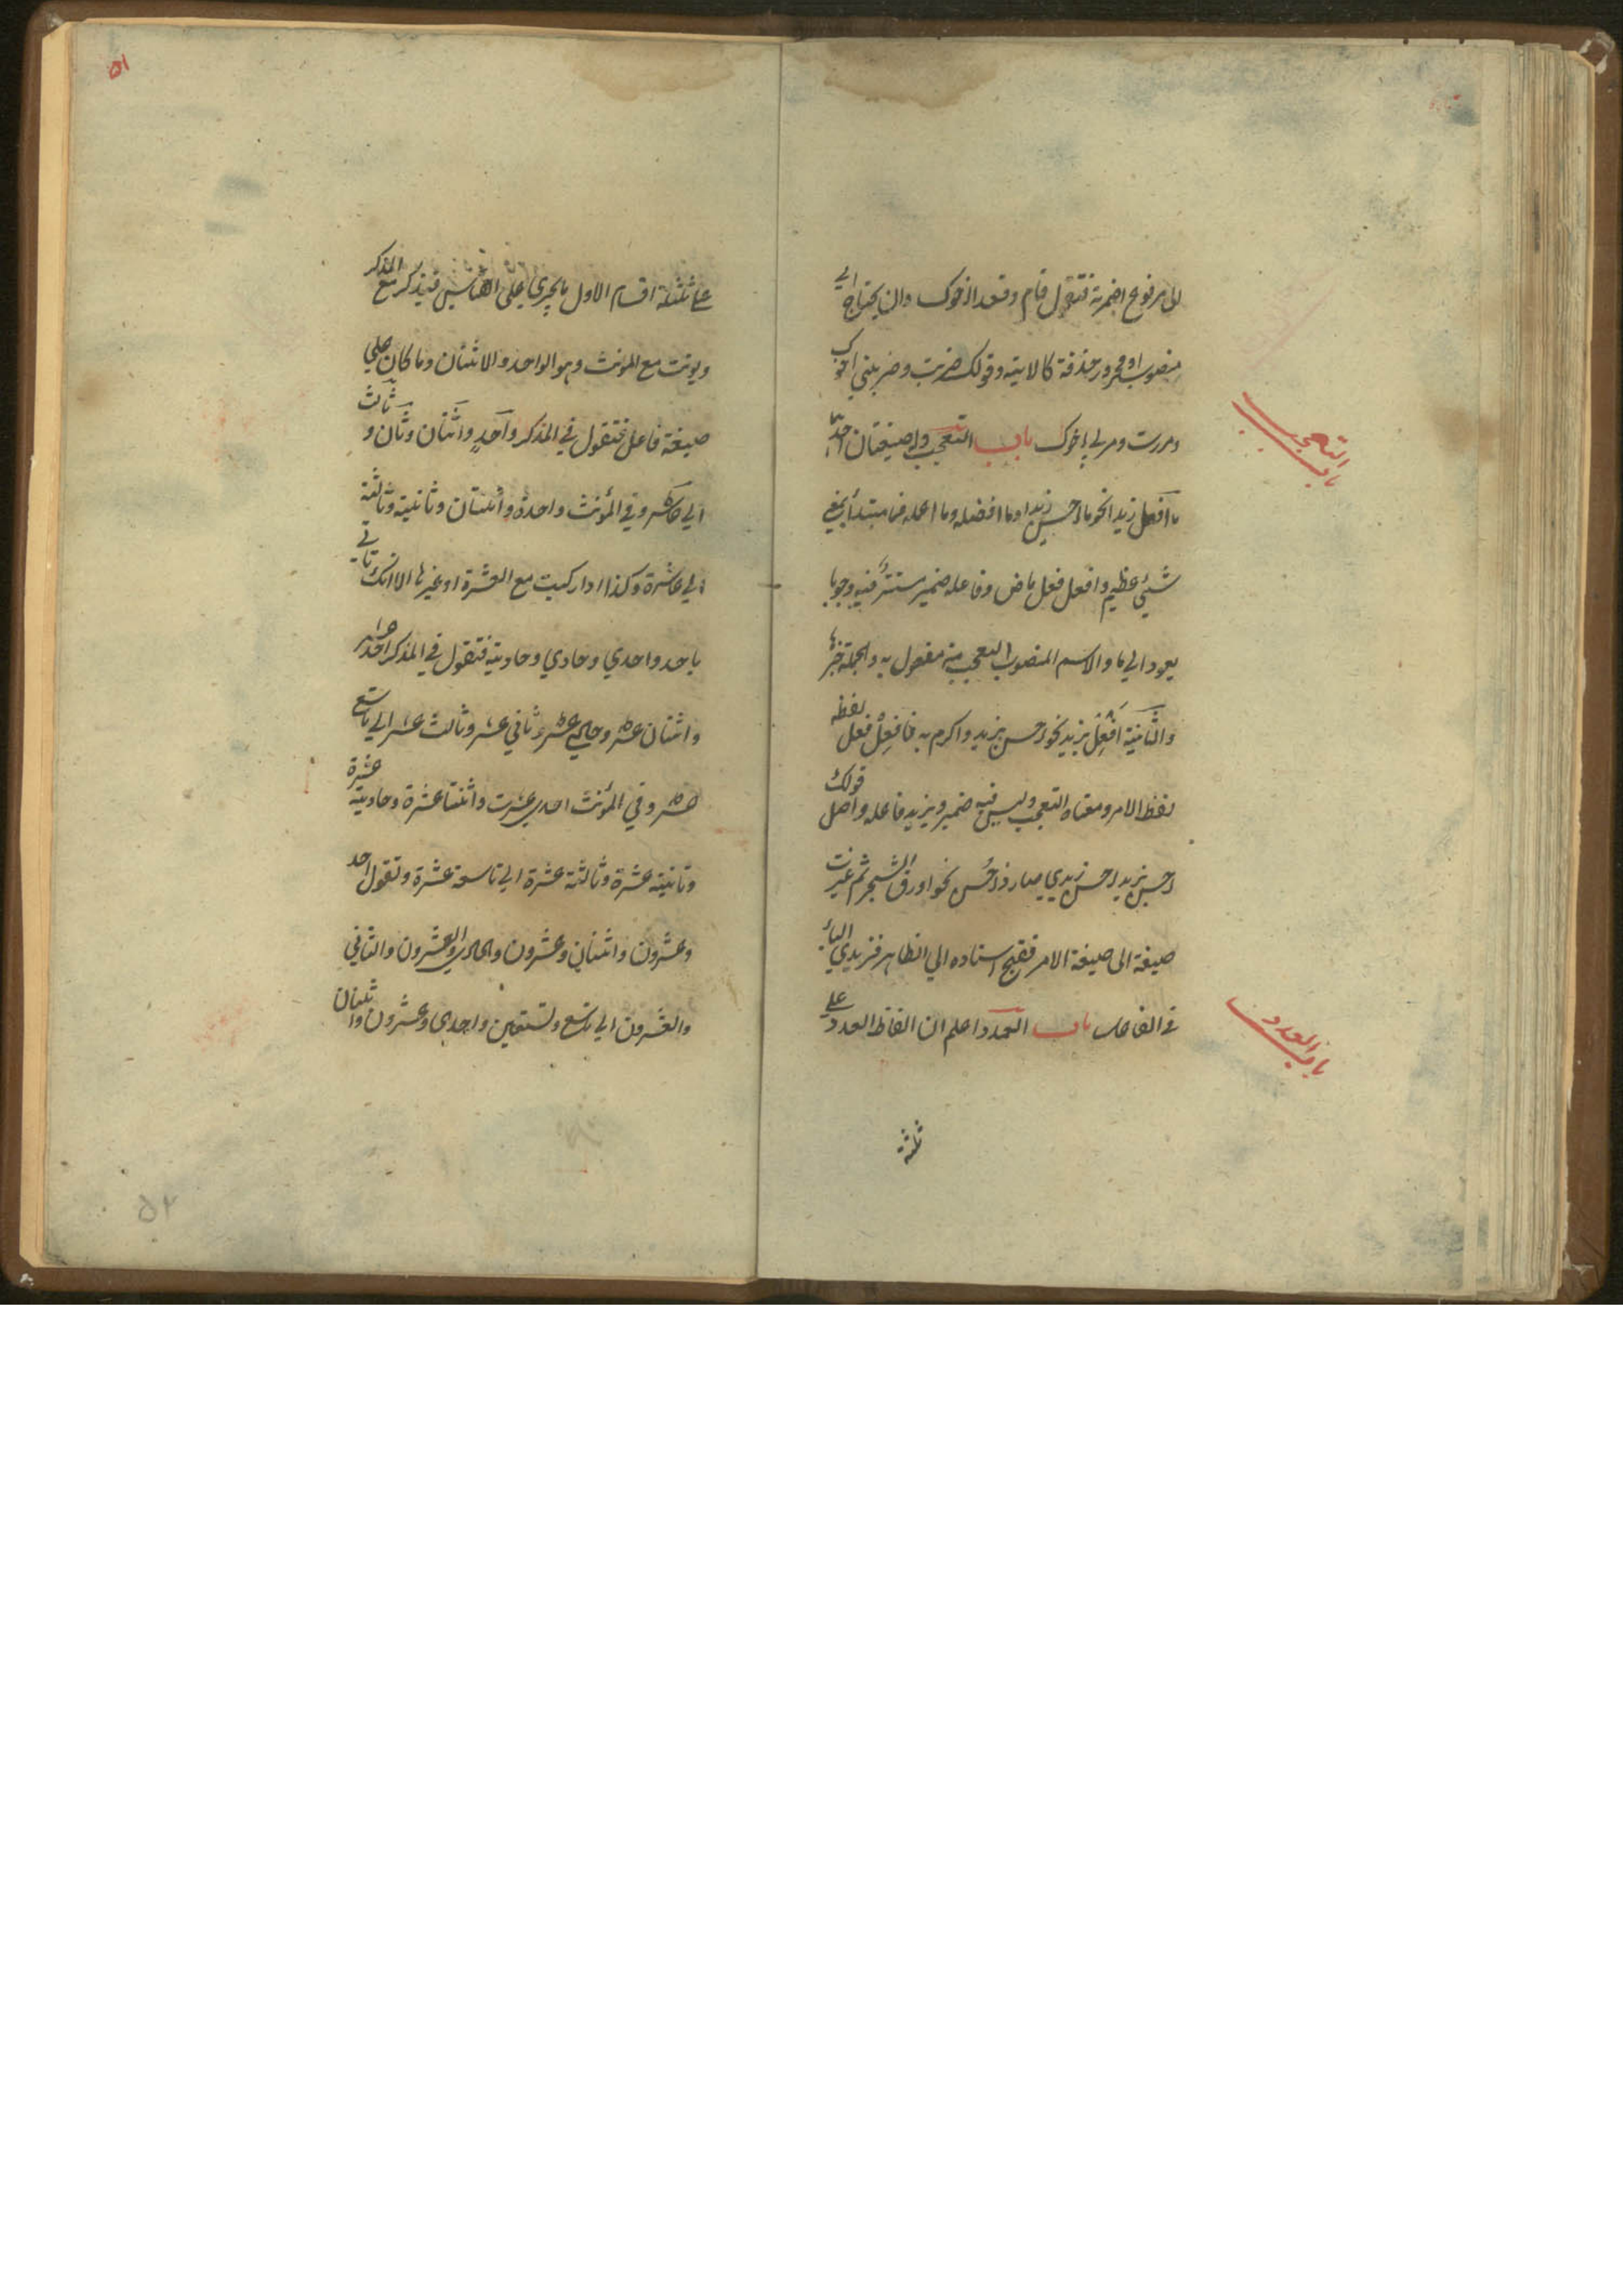 الى مرفوع اضمرته فتقول قام وقعد اخوك وان يحتاج الي
منصوب او مجرور حذفته كالاية وقولك ضربت وضربني اخوك
ومررت ومر بي اخوك باب التعجب وله صيغتان احدها
ما افعل زيدا نحو ما احسن زيدا وما افضله وما اعلمه فما مبتدأ بمعني
شيئ عظيم وافعل فعل ماض وفاعله ضمير مستتر فيه وجوبا
يعود الي ما والاسم المنصوب المتعجب منه مفعول به والجملة خبرها
والثانية افعل بزيد نحو احسن بزيد واكرم به فافعل فعل لفظه
لفظ الامر ومعناه التعجب وليس فيه ضمير وبزيد فاعله واصل قولك
احسن بزيد احسن زيد اي صار ذا حسن نحو اورق الشجر ثم غيرت
صيغة الى صيغة الامر فقبح اسناده الي الظاهر فزيد الباء
في الفاعل باب العدد اعلم ان الفاظ العدد علي
ثلثة
باب التعجب
باب العدد
٥١
علي ثلثة اقسام الاول ما يجري علي القياس فيذكر مع المذكر
ويونث مع المونث وهو الواحد والاثنان وما كان علي
صيغة فاعل فتقول في المذكر واحد واثنان وثان وثالث
الي عاشر وفي المؤنث واحدة واثنتان وثانية وثالثة
الي عاشرة وكذا اذا ركبت مع العشرة او غيرها الا انك تاتي
باحد واحدي وحادي وحادية فتقول في المذكر احد عشر
واثنان عشر وحادي عشر وثاني عشر وثالث عشر الي تاسع
عشر وفي المؤنث احدي عشرت واثنتا عشرة وحادية عشرة
وثانية عشرة وثالثة عشرة الي تاسعة عشرة وتقول احد
وعشرون واثنان وعشرون والحادي والعشرون والثاني
والعشرون الي تاسع وتسعين واحدي وعشرون واثنتان
٥٢